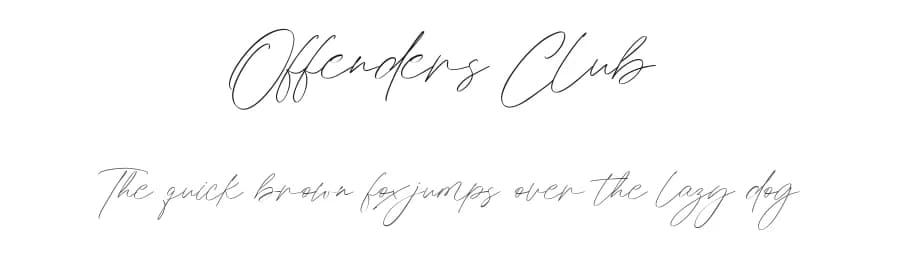 Offenders Club
The quick brown fox jumps over the lazy dog